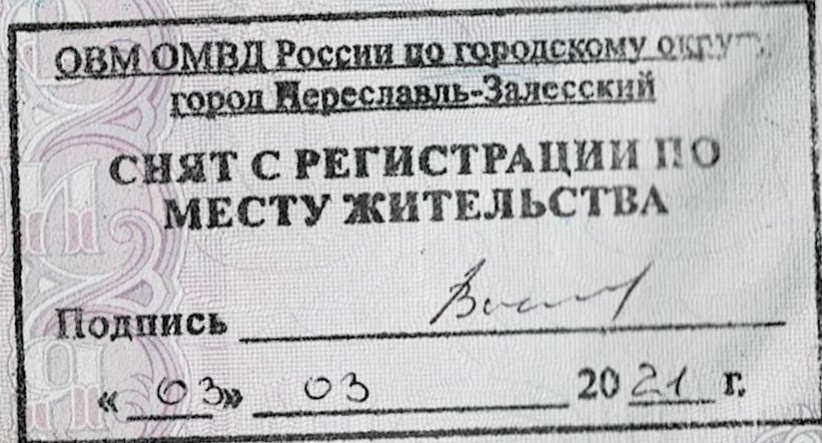 ОВМ ОМВД России по городскому округу
город Переславль-Залесский
СНЯТ С РЕГИСТРАЦИИ ПО
МЕСТУ ЖИТЕЛЬСТВА
Подпись
« 03 » 03 2021 г.